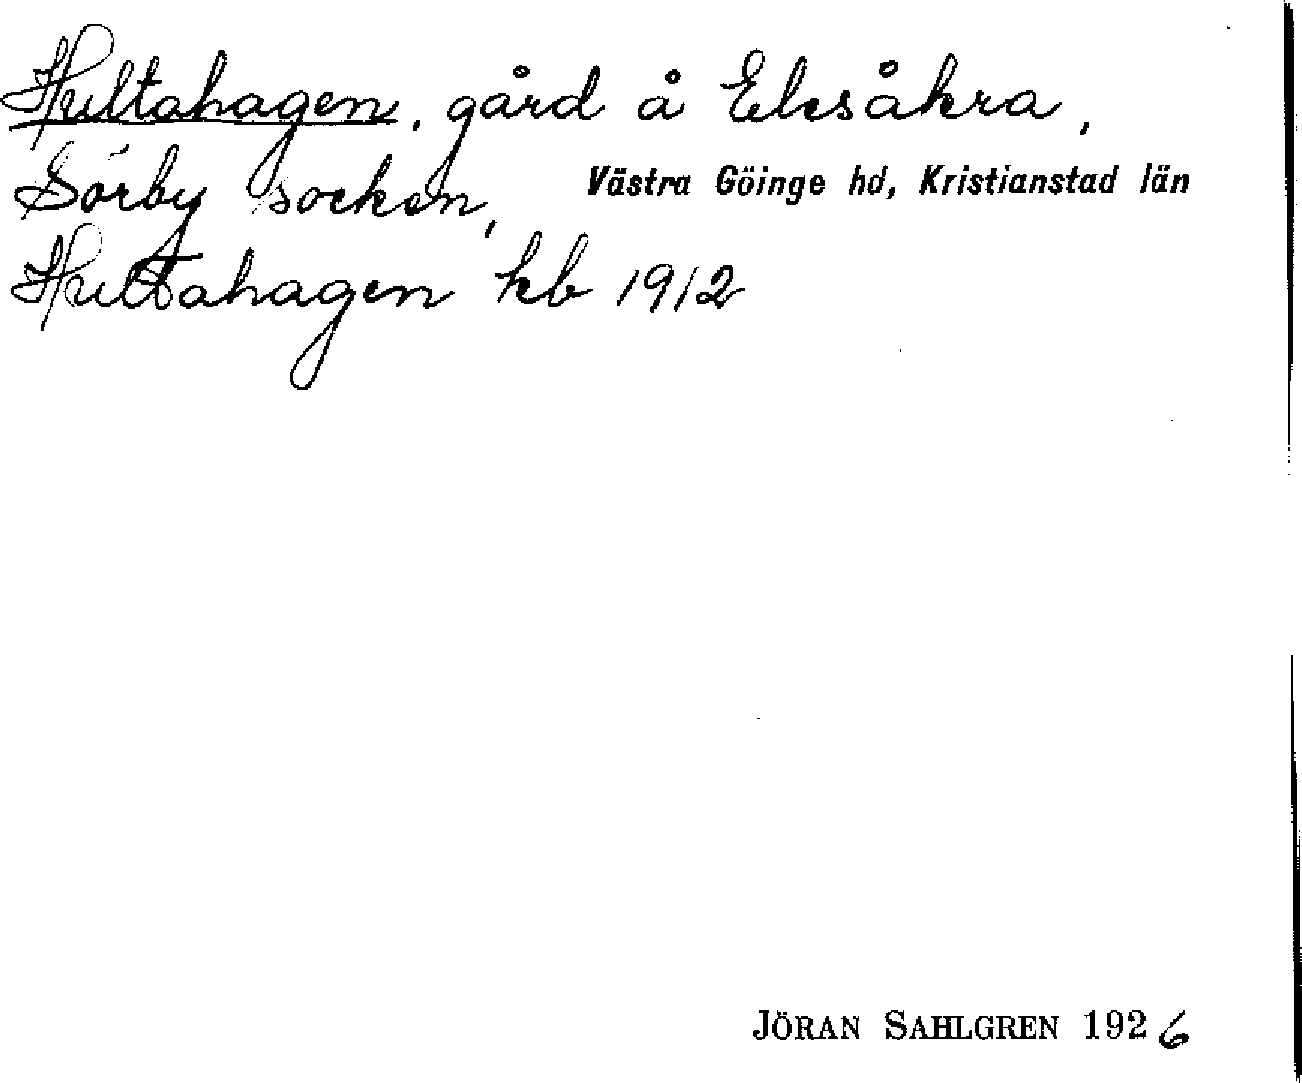 Hultahagen, gård å Eksåkra,
Sörby socken, Västra Göinge hd, Kristianstad län
Hultahagen kb 1912
JÖRAN SAHLGREN 1926